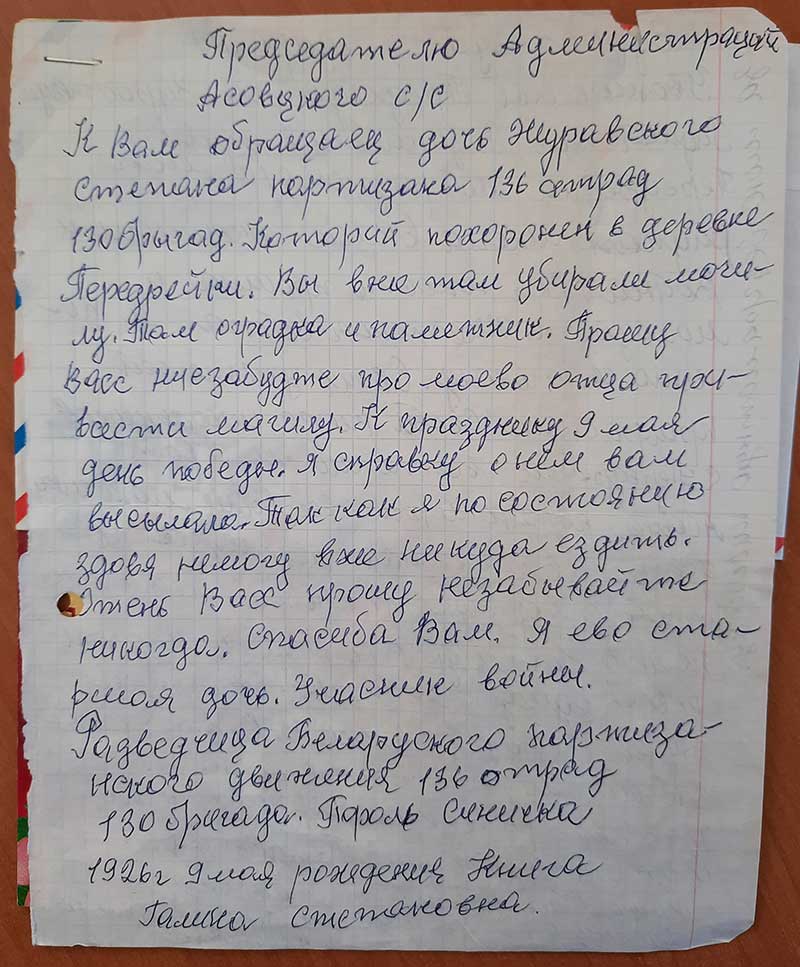 Председателю Администраций
Асовцкого с/с
К Вам обращаец дочь Журавского
Степана партизана 136 атрад
130 брыгад. Который похоронен в деревне
Передрейки. Вы вже там убирали моги-
лу. Там оградка и паметник. Прошу
Васс ниезабудте про моево отца при-
вести магилу. К празднику 9 мая
день победы. я справку о нем вам
высылала. Так как я по состоянию
здовя немогу вже никуда ездить.
Очень Васс прошу незабывайте
никогда. Спасиба Вам. Я ево ста-
ршая дочь. Учасник войны.
Радведчица Беларуского партиза-
нского движения 136 отрад
130 бригада. Пароль Синичка
1926г 9 мая рождения Книга
Галина Степановна.